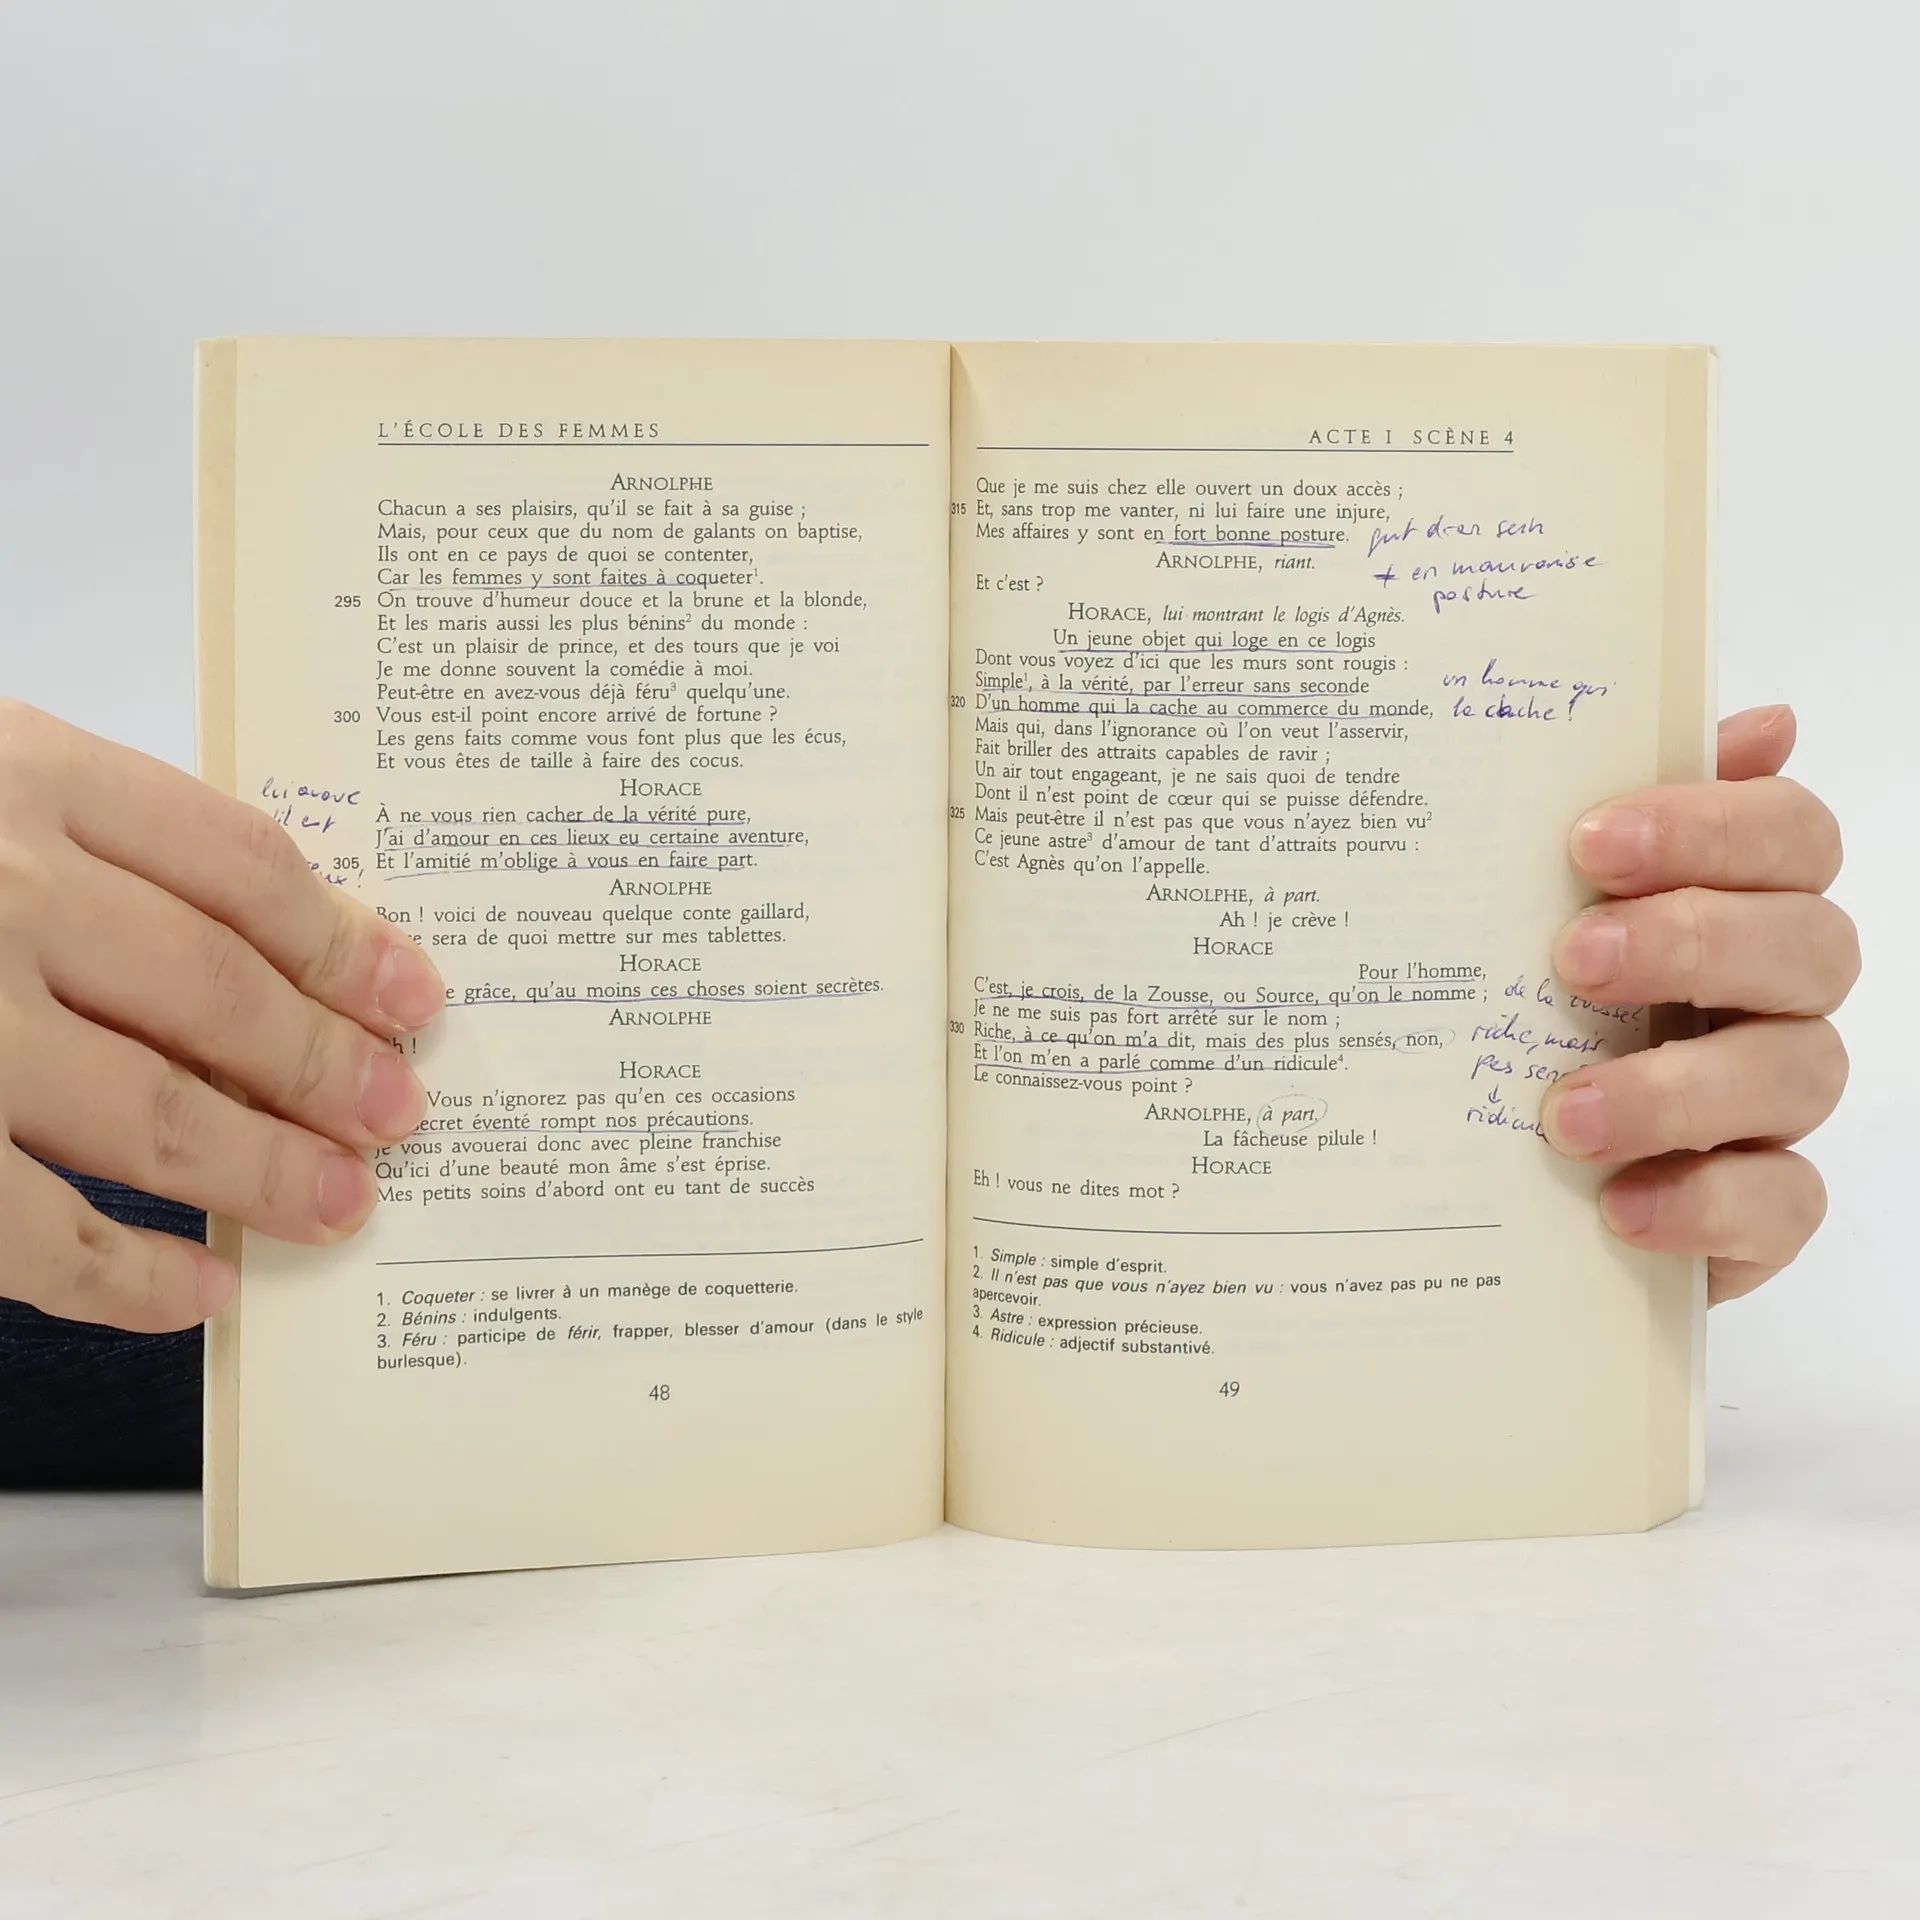 L'ÉCOLE DES FEMMES
ARNOLPHE
Chacun a ses plaisirs, qu'il se fait à sa guise ;
Mais, pour ceux que du nom de galants on baptise,
Ils ont en ce pays de quoi se contenter,
Car les femmes y sont faites à coqueter¹.
295 On trouve d'humeur douce et la brune et la blonde,
Et les maris aussi les plus bénins² du monde :
C'est un plaisir de prince, et des tours que je voi
Je me donne souvent la comédie à moi.
Peut-être en avez-vous déjà féru³ quelqu'une.
300 Vous est-il point encore arrivé de fortune ?
Les gens faits comme vous font plus que les écus,
Et vous êtes de taille à faire des cocus.
HORACE
lui avoue
À ne vous rien cacher de la vérité pure,
J'ai d'amour en ces lieux eu certaine aventure,
305 Et l'amitié m'oblige à vous en faire part.
ARNOLPHE
Bon ! voici de nouveau quelque conte gaillard,
sera de quoi mettre sur mes tablettes.
HORACE
grâce, qu'au moins ces choses soient secrètes.
ARNOLPHE
h !
HORACE
Vous n'ignorez pas qu'en ces occasions
ecret éventé rompt nos précautions.
Je vous avouerai donc avec pleine franchise
Qu'ici d'une beauté mon âme s'est éprise.
Mes petits soins d'abord ont eu tant de succès
1. Coqueter : se livrer à un manège de coquetterie.
2. Bénins : indulgents.
3. Féru : participe de férir, frapper, blesser d'amour (dans le style
burlesque).
48
ACTE I SCÈNE 4
Que je me suis chez elle ouvert un doux accès ;
315 Et, sans trop me vanter, ni lui faire une injure,
Mes affaires y sont en fort bonne posture.
ARNOLPHE, riant.
≠ en mauvaise
posture
Et c'est ?
HORACE, lui montrant le logis d'Agnès.
Un jeune objet qui loge en ce logis
Dont vous voyez d'ici que les murs sont rougis :
Simple¹, à la vérité, par l'erreur sans seconde
un homme qui
320 D'un homme qui la cache au commerce du monde,
la cache !
Mais qui, dans l'ignorance où l'on veut l'asservir,
Fait briller des attraits capables de ravir ;
Un air tout engageant, je ne sais quoi de tendre
Dont il n'est point de cœur qui se puisse défendre.
325 Mais peut-être il n'est pas que vous n'ayez bien vu²
Ce jeune astre³ d'amour de tant d'attraits pourvu :
C'est Agnès qu'on l'appelle.
ARNOLPHE, à part.
Ah ! je crève !
HORACE
Pour l'homme,
C'est, je crois, de la Zousse, ou Source, qu'on le nomme ; de la
Je ne me suis pas fort arrêté sur le nom ;
330 Riche, à ce qu'on m'a dit, mais des plus sensés, non,
riche, mais
Et l'on m'en a parlé comme d'un ridicule⁴.
pas
Le connaissez-vous point ?
↓
ARNOLPHE, à part.
La fâcheuse pilule !
HORACE
Eh ! vous ne dites mot ?
1. Simple : simple d'esprit.
2. Il n'est pas que vous n'ayez bien vu : vous n'avez pas pu ne pas
apercevoir.
3. Astre : expression précieuse.
4. Ridicule : adjectif substantivé.
49